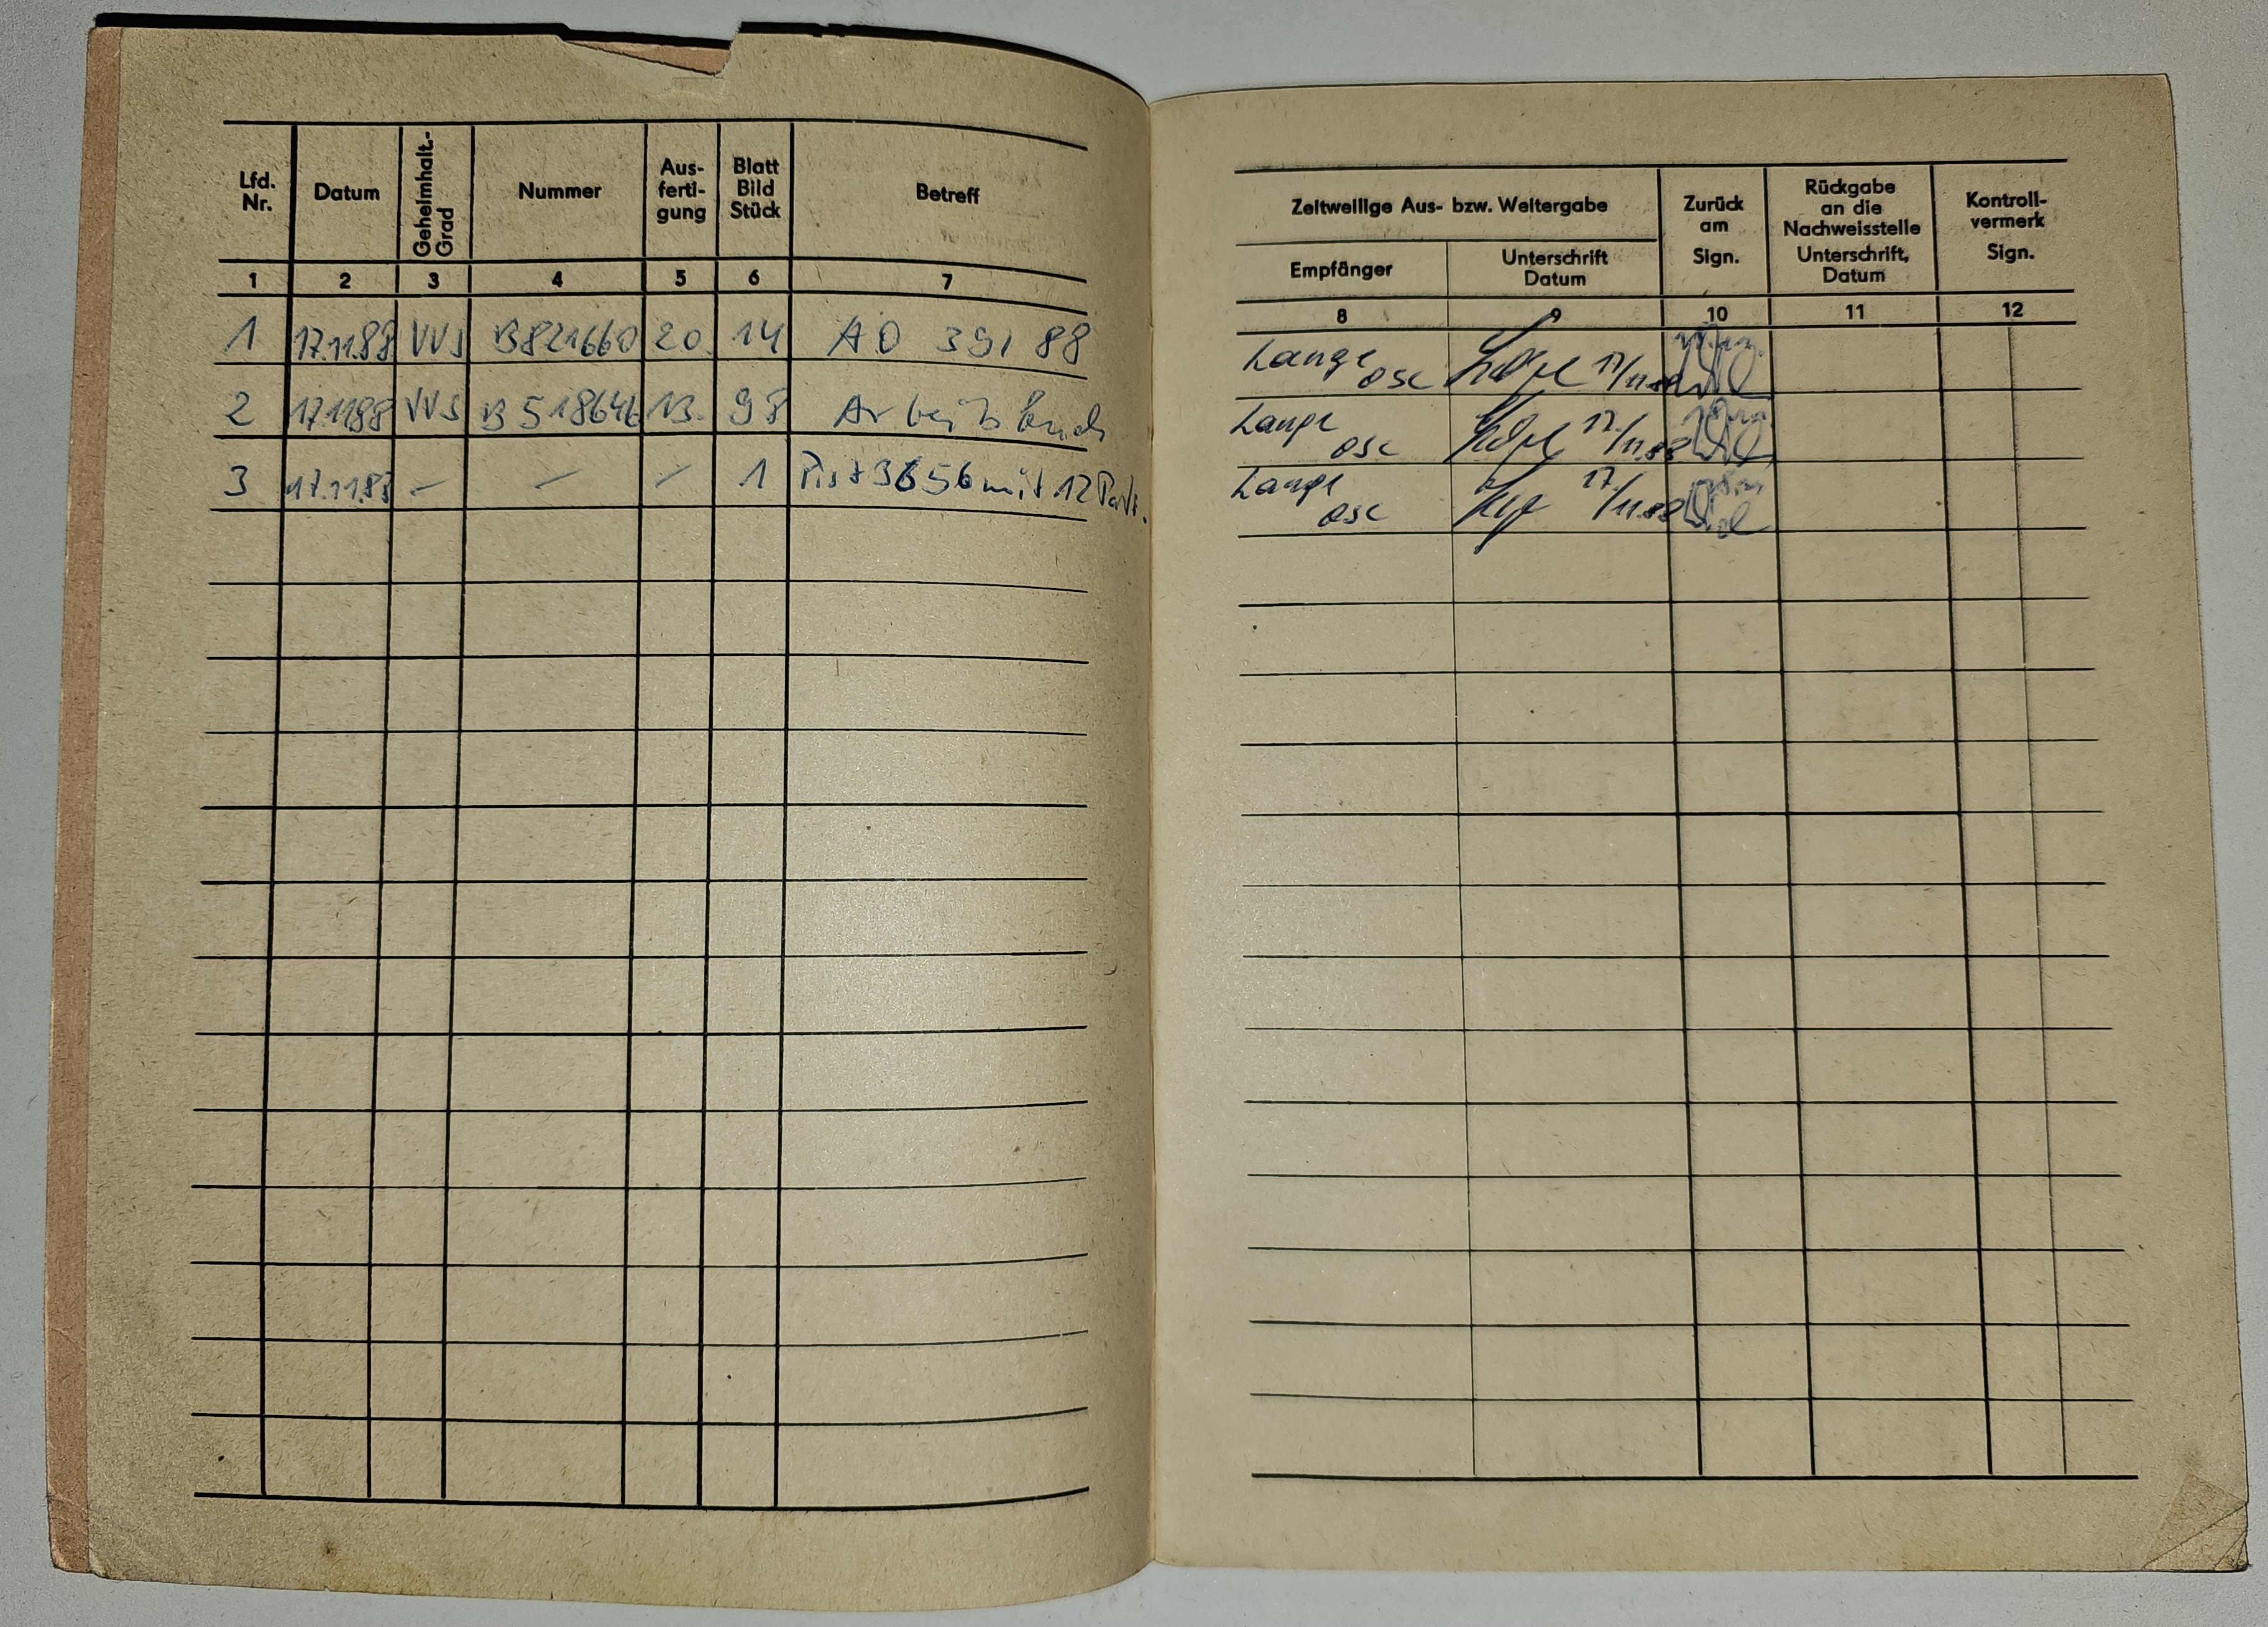 Lfd. Nr.
Datum
Geheimhalt.-Grad
Nummer
Aus-
ferti-
gung
Blatt
Bild
Stück
Betreff
1 2 3 4 5 6 7
1 17.11.88 VVS B821660 20. 14 AO 39/88
2 17.11.88 VVS B518646 13. 98 Arbeitsbuch
3 17.11.88 – – – 1 Pist 3656 mit 12 Patr.
Zeitweilige Aus- bzw. Weitergabe
Empfänger
Unterschrift
Datum
Zurück
am
Sign.
Rückgabe
an die
Nachweisstelle
Unterschrift,
Datum
Kontroll-
vermerk
Sign.
8 9 10 11 12
Lange
OSC 17/11.88
Lange
OSC 17./11.88
Lange
OSC 17./11.88